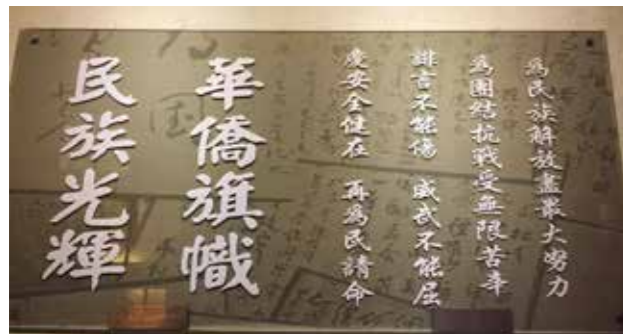 為民族解放盡最大努力
為團結抗戰受無限苦辛
誹言不能傷 威武不能屈
慶安全健在 再為民請命
華僑旗幟
民族光輝